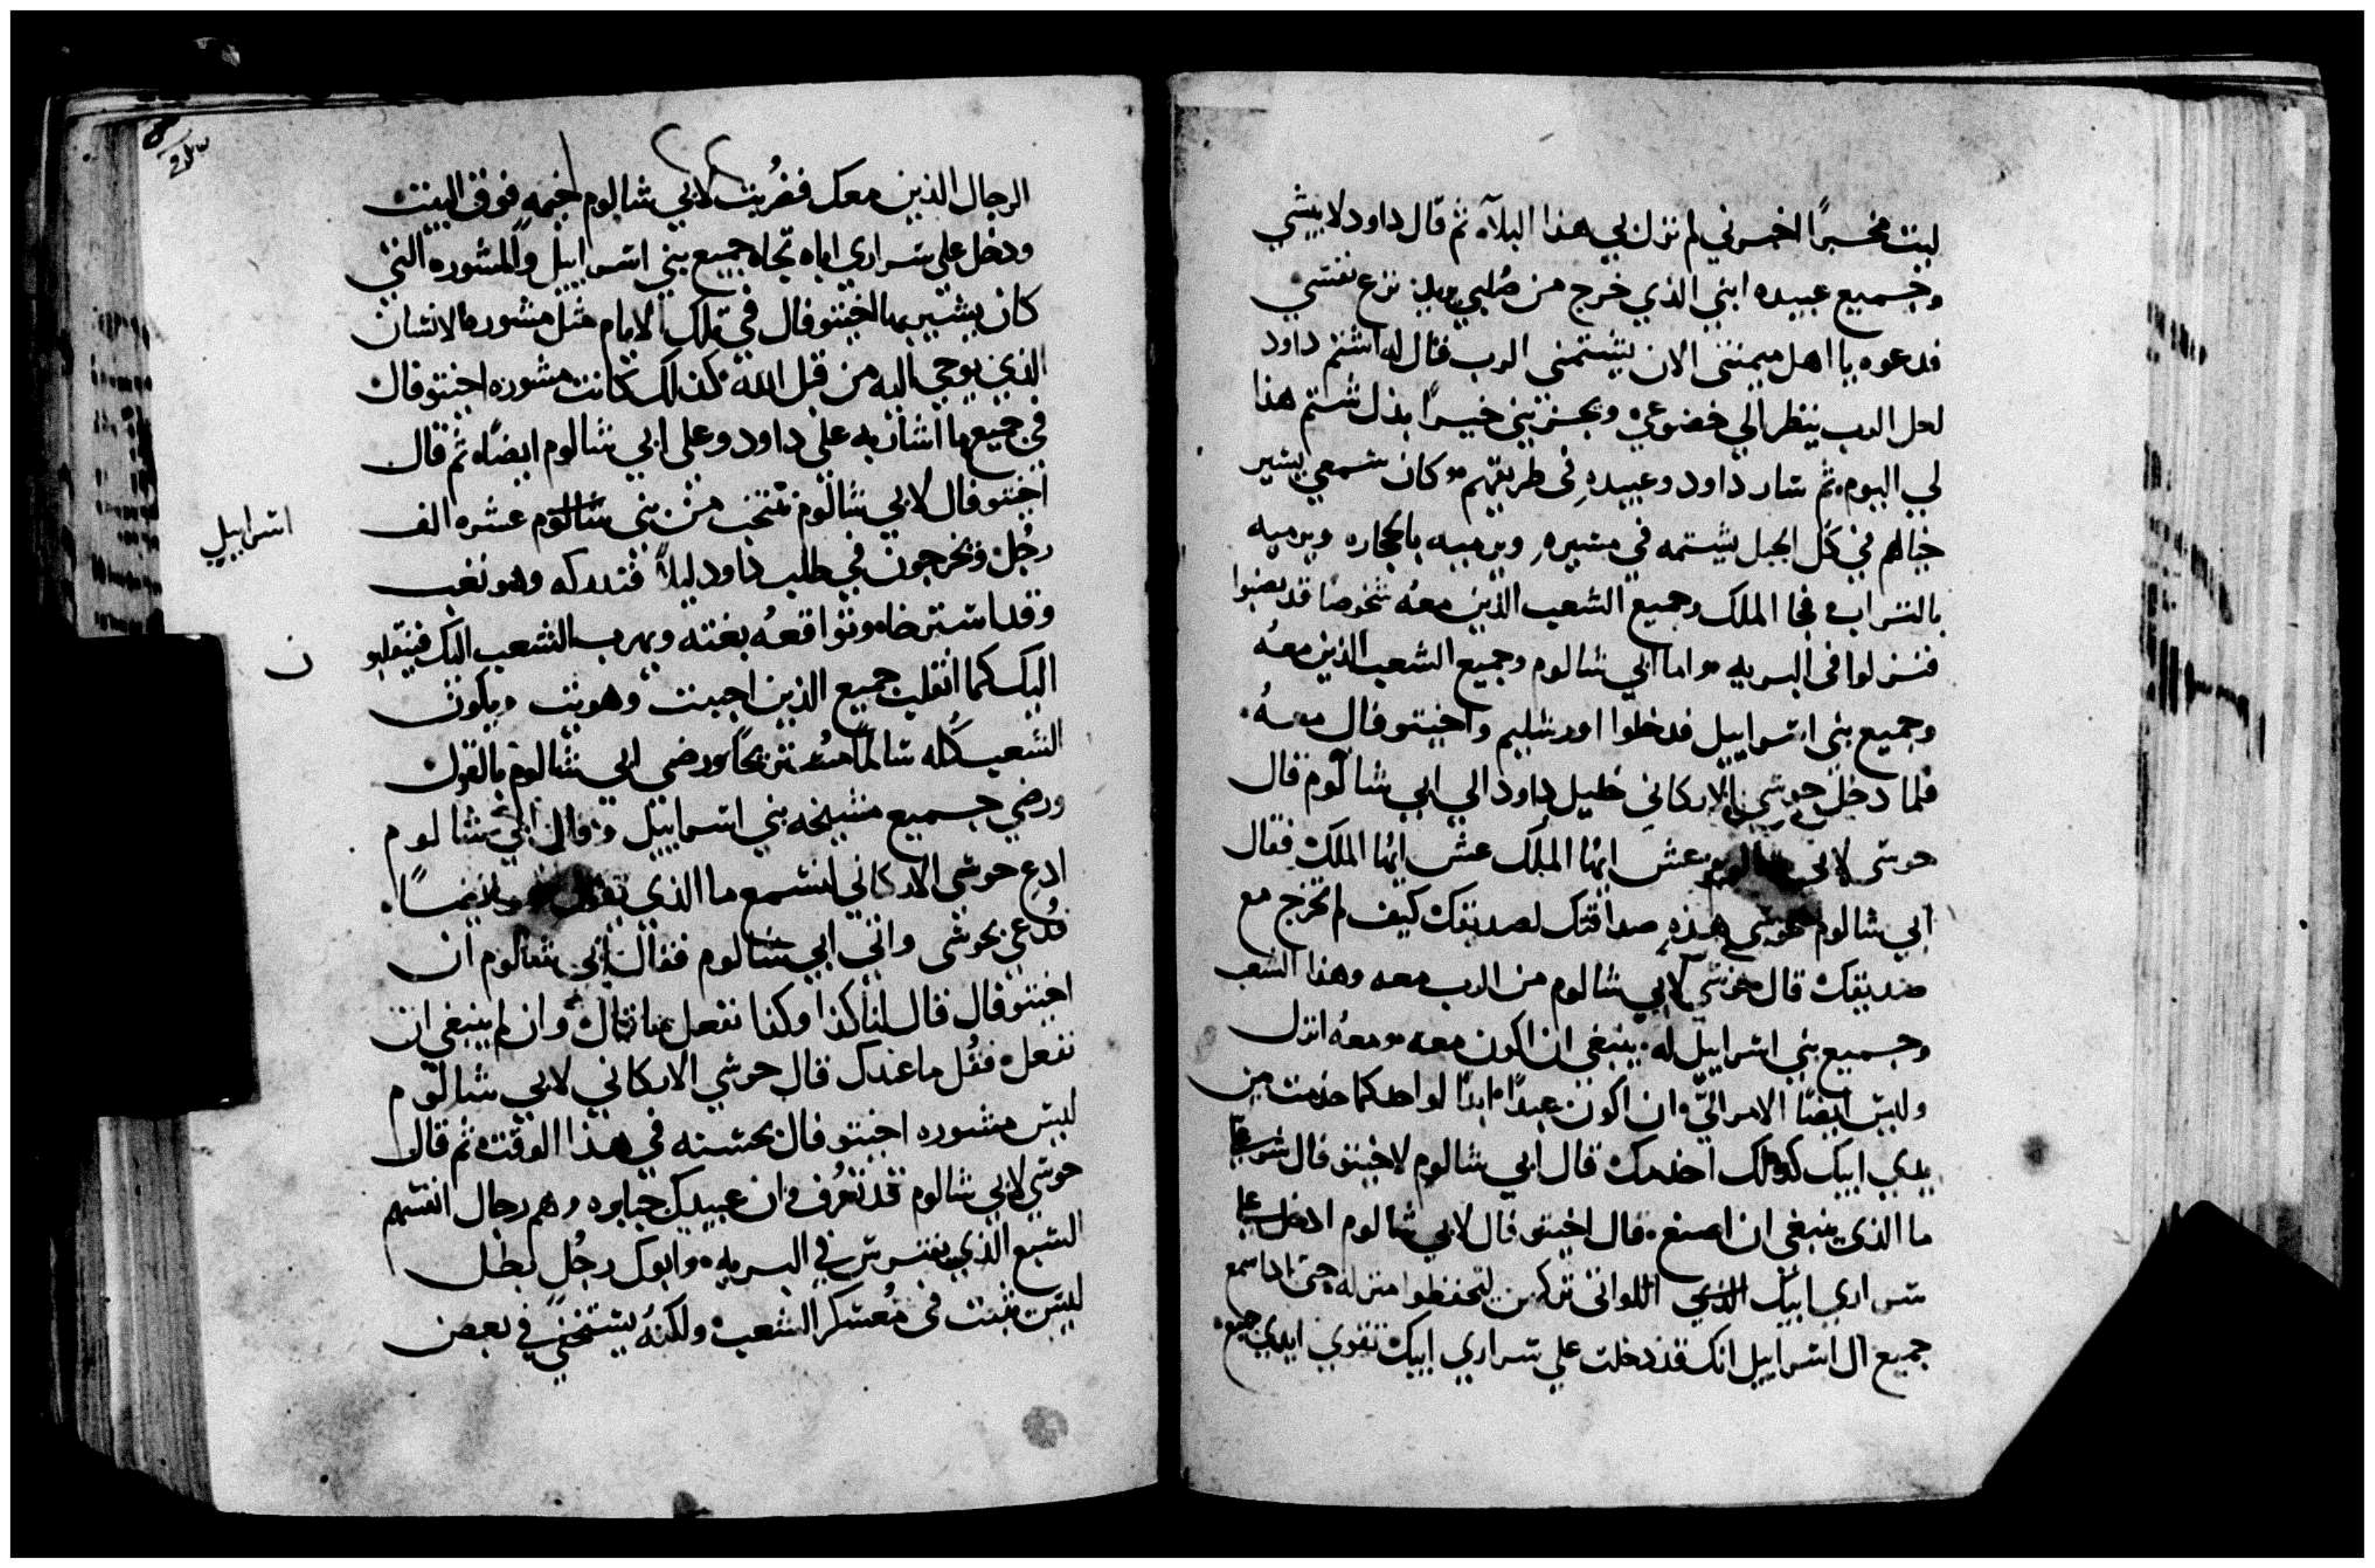 ليت مخبرًا اخبرني لم نزل بي هذا البلآء ثم قال داود لابيشي
وجميع عبيده ابني الذي خرج من صلبي يريد نزع نفسي
فدعوه يا اهل ميمنتي الان يشتمني الرب قال له اشتم داود
لعل الرب ينظر الي خضوعي ويجزيني خيرًا بدل شتم هذا
لي اليوم ثم سار داود وعبيده في طريقهم وكان شمعي يسير
حيالهم في كل الجبل يشتمه في مسيره ويرميه بالحجاره ويرميه
بالتراب فجا الملك وجميع الشعب الذين معه شخوصًا قد نصبوا
فنزلوا في البريه واما ابي شالوم وجميع الشعب الذين معه
وجميع بني اسراييل فدخلوا اورشليم واخيتوفال معه
فلما دخل حوشي الاركاني خليل داود الي ابي شالوم قال
حوشي لابي شالوم عش ايها الملك عش ايها الملك فقال
ابي شالوم لحوشي هذه صداقتك لصديقك كيف لم تخرج مع
صديقك قال حوشي لابي شالوم من الرب معه وهذا الشعب
وجميع بني اسراييل له ينبغي ان اكون معه ومعه انزل
وليس ايضًا الامر اليّ وان اكون عبدًا ابدًا لواحد كما خدمت بين
يدي ابيك كذلك اخدمك قال ابي شالوم لاخيتوفال شوروا
ما الذي ينبغي ان اصنع قال اخيتوفال لابي شالوم ادخل علي
سراري ابيك الذي اللواتي تركهن ليحفظوا منزله حتى اذا سمع
جميع ال اسراييل انك قد دخلت علي سراري ابيك تقوي ايدي جميع
الرجال الذين معك فضربت لابي شالوم خيمه فوق البيت
ودخل علي سراري اباه تجاه جميع بني اسراييل والمشوره التي
كان يشير بها اخيتوفال في تلك الايام مثل مشوره الانسان
الذي يوحي اليه من قبل الله كذلك كانت مشوره اخيتوفال
في جميع ما اشار به علي داود وعلي ابي شالوم ايضًا ثم قال
اخيتوفال لابي شالوم تنتخب من بني شالوم عشره الف
اسراييل
رجُل ونخرجون في طلب داود ليلاً فتدركه وهو تعب
وقد استرخاه وتواقعه بغته ويهرب الشعب اليك فينقلبو
ن
اليك كما انقلب جميع الذين احببت وهويت ويكون
الشعب كله سالمًا مستريحًا ورضي ابي شالوم بالقول
ورضي جميع مشيخه بني اسراييل وقال ابي شالوم
ادع حوشي الاركاني لنسمع ما الذي يقول هو ايضًا
فدعي بحوشي واتي ابي شالوم فقال ابي شالوم ان
اخيتوفال قال لنا كذا وكذا نفعل ما قال وان لم ينبغي ان
نفعل فقُل ما عندك قال حوشي الاركاني لابي شالوم
ليس مشوره اخيتوفال بحسنه في هذا الوقت ثم قال
حوشي لابي شالوم قد تعرف وان عبيدك جبابره وهم رجال انفسهم
السبع الذي يفترس في البريه وابوك رجُل بطل
ليس يثبت في مُعسكر الشعب ولكنه يستخفي في بعض